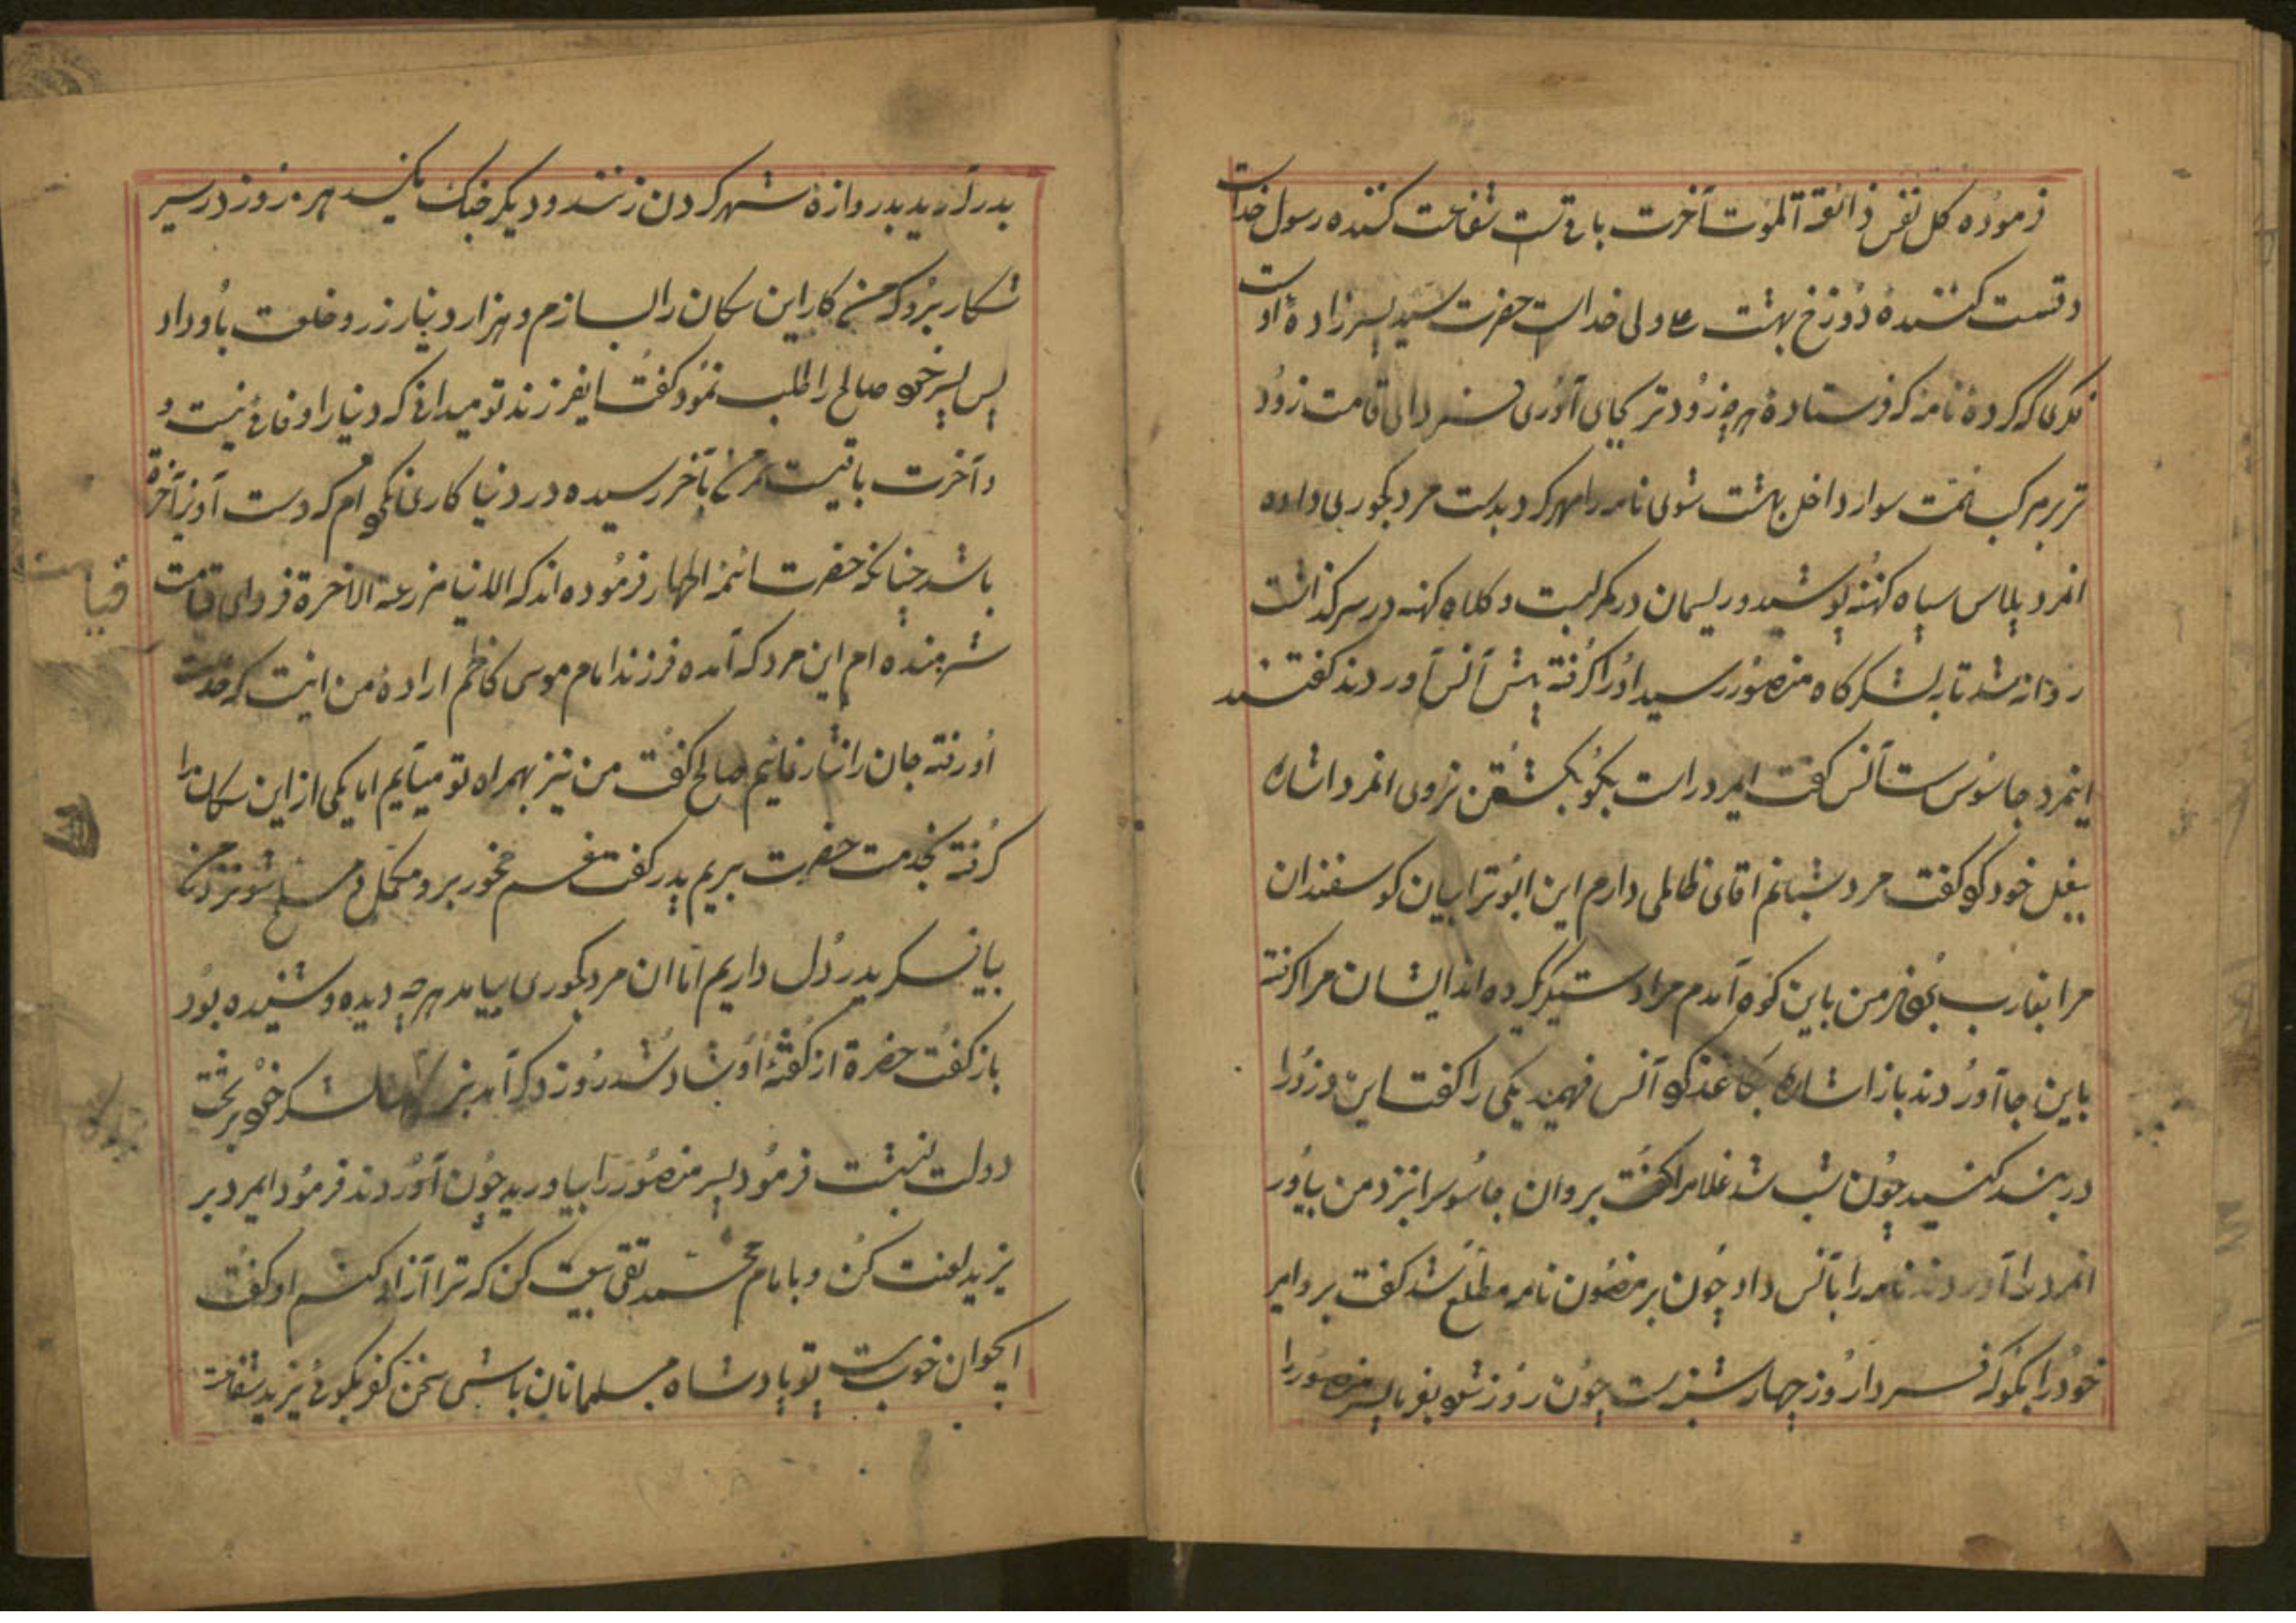 فرموده کل نفس ذائقة الموت آخرت باقیست شفاعت کننده رسول خداست
و قسمت کننده دوزخ بهشت علی ولی خداست حضرت سید پسرزاده اوست
که کرده نامه که فرستاده هرچه زودتر بجای آوری فردای قیامت زود
تر بر مرکب سوار داخل بهشت شوی نامه را مهر کرد بدست مرد داده
انمرد پلاس سیاه کهنه پوشید و ریسمان در کمر بست و کلاه کهنه در سر گذاشت
روانه شد تا به لشکرگاه منصور رسید او را گرفته پیش آنس آوردند گفتند
اینمرد جاسوس است آنس گفت ایمرد راست بگو بکشتن نروی انمرد اشاره
ببغل خود کو گفت مرد شبانم اقای ظالمی دارم این ابوترابیان کوسفندان
مرا بغارت من باین کوه آمدم مرا دستگیر کرده اند ایشان مرا گرفته
باین جا آوردند باز اشاره بکاغذ کو آنس فهمید یکی را گفت این دزد را
در بند کنید چون شب شد غلامرا گفت برو ان جاسوسرا نزد من بیاور
انمرد را آوردند نامه را بآنس داد چون بر مضمون نامه مطلع شد گفت برو امیر
خود را بگو که فردا روز چهارشنبه است چون روز شو بفرما پسر منصور را
بدر آرید بدروازه شهر کردن زنند و دیگر جنک مکنید هر روز در سیر
شکار برو که من کار این سکان را بسازم و هزار دینار زر و خلعت باو داد
پس پسر خو صالح را طلب نمود گفت ایفرزند تو میدانی که دنیا را وفائی نیست و
و آخرت باقیست عمر من بآخر رسیده در دنیا کاری نکو ام که دست آویز آخرة
باشد چنانکه حضرت ائمه اطهار فرموده اند که الدنیا مزرعة الاخرة فردای قیامت
شرمنده ام این مرد که آمده فرزند امام موسی کاظم اراده من اینست که خدمت
او رفته جان را نثار نمایم صالح گفت من نیز بهمراه تو میآیم اما یکی از این سکان را
گرفته بخدمت حضرت بریم پدر گفت غم مخور برو مکمل و مسلح شو نزد من
بیا پدر دل داریم اما ان مرد بیامد هرچه دیده و شنیده بود
باز گفت حضرة از گفته او شاد شد روز دکر آمد لشکر خو بر تخت
دولت نشست فرمود پسر منصور را بیاورید چون آوردند فرمود ایمرد بر
یزید لعنت کن و بامام محمد تقی بیعت کن که ترا آزاد کنم او گفت
ایجوان خوب است تو پادشاه مسلمانان باشی سخن کفر بگوئی یزید شفاعت
قیامت